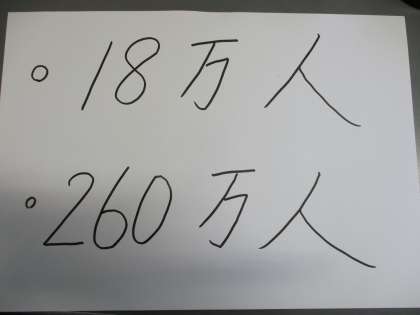 。18万人
。260万人